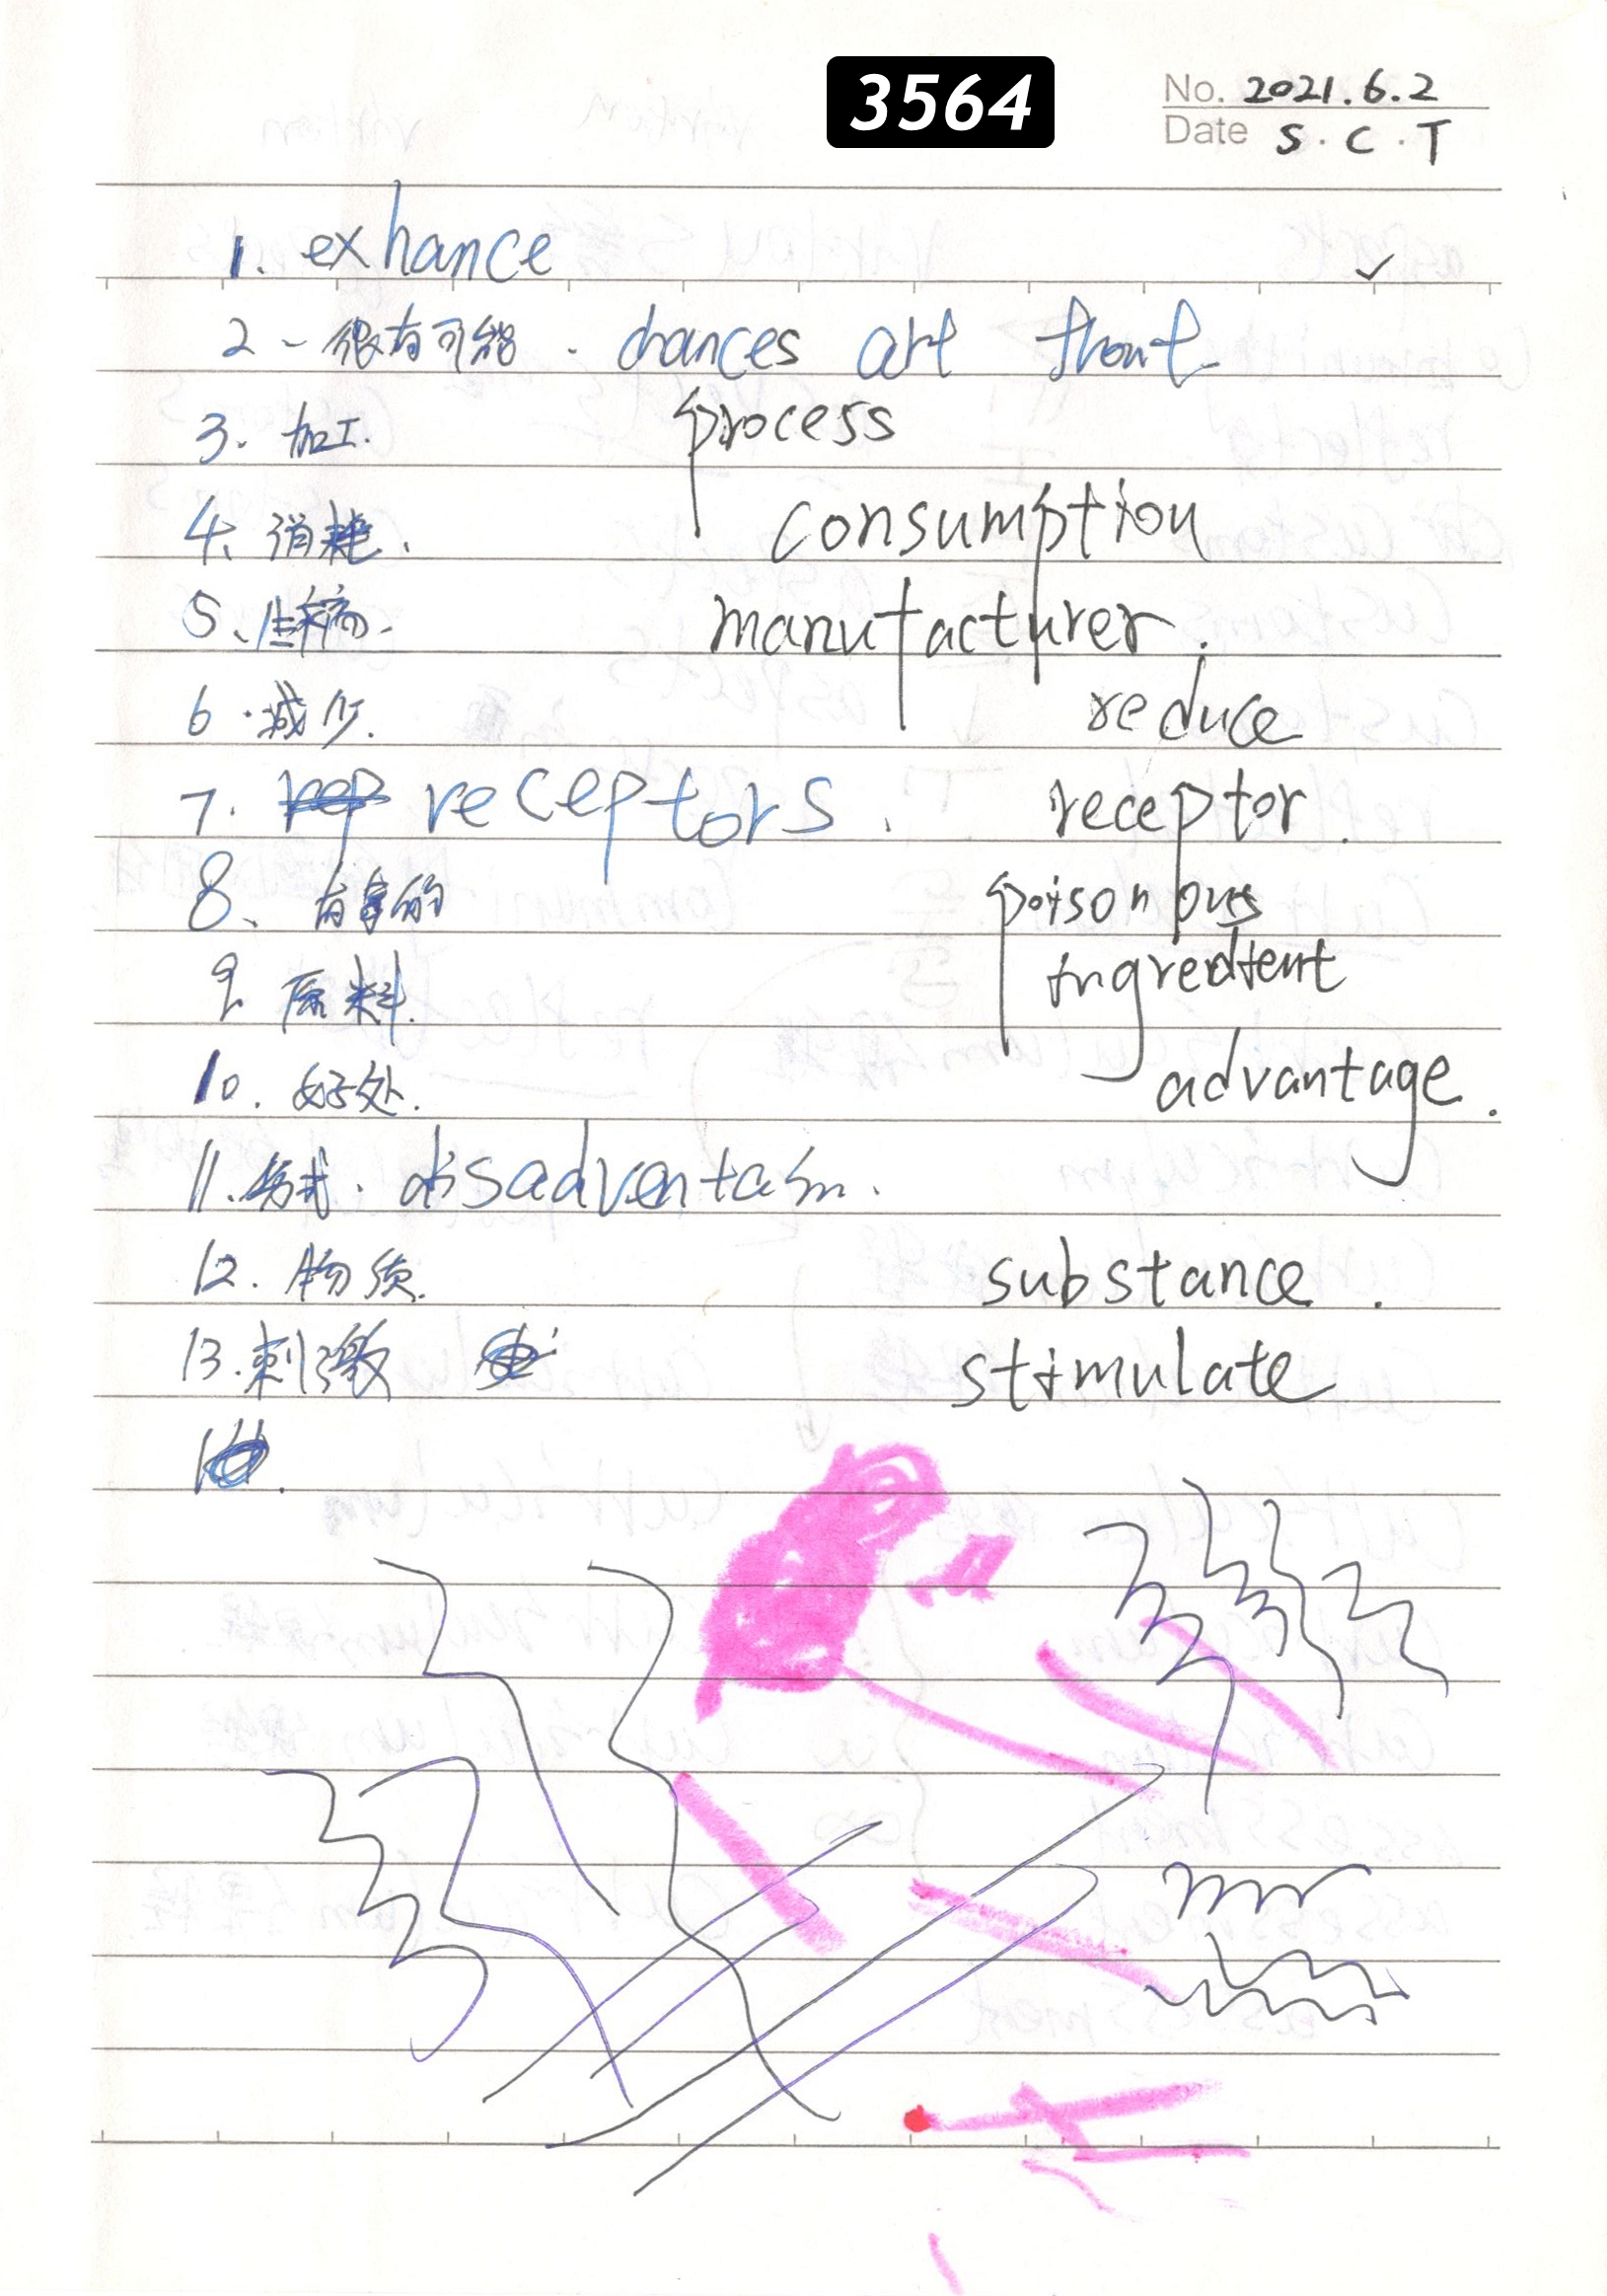 3564
No. 2021.6.2
Date S.C.T
1. exhance ✓
2. 很有可能. chances art thont.
3. 加工. process
4. 消耗. consumption
5. manufacturer.
6. 减少. reduce
7. receptors. receptor.
8. 有害的 poisonous
9. 原料. ingredient
10. 好处. advantage.
11.
12. 物质. substance.
13. 刺激 stimulate